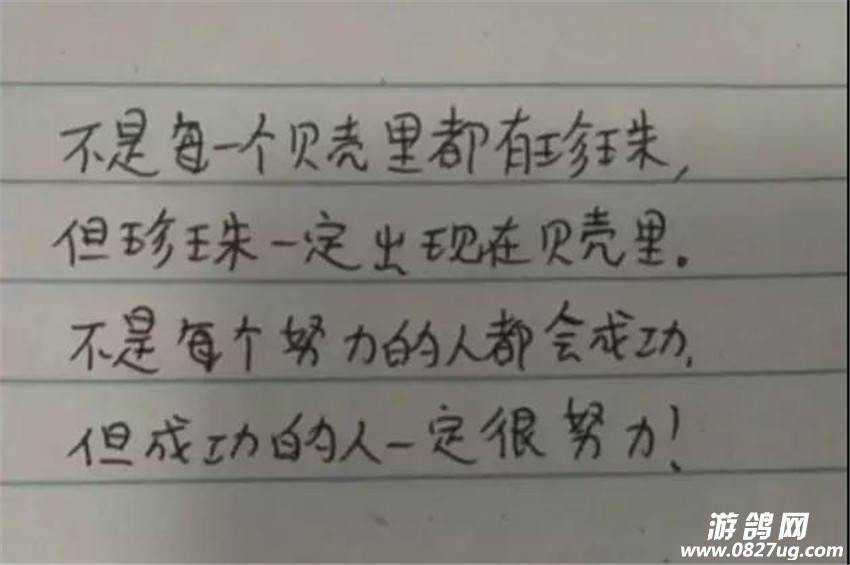 不是每一个贝壳里都有珍珠,
但珍珠一定出现在贝壳里。
不是每个努力的人都会成功,
但成功的人一定很努力!
游鸽网
www.0827ug.com